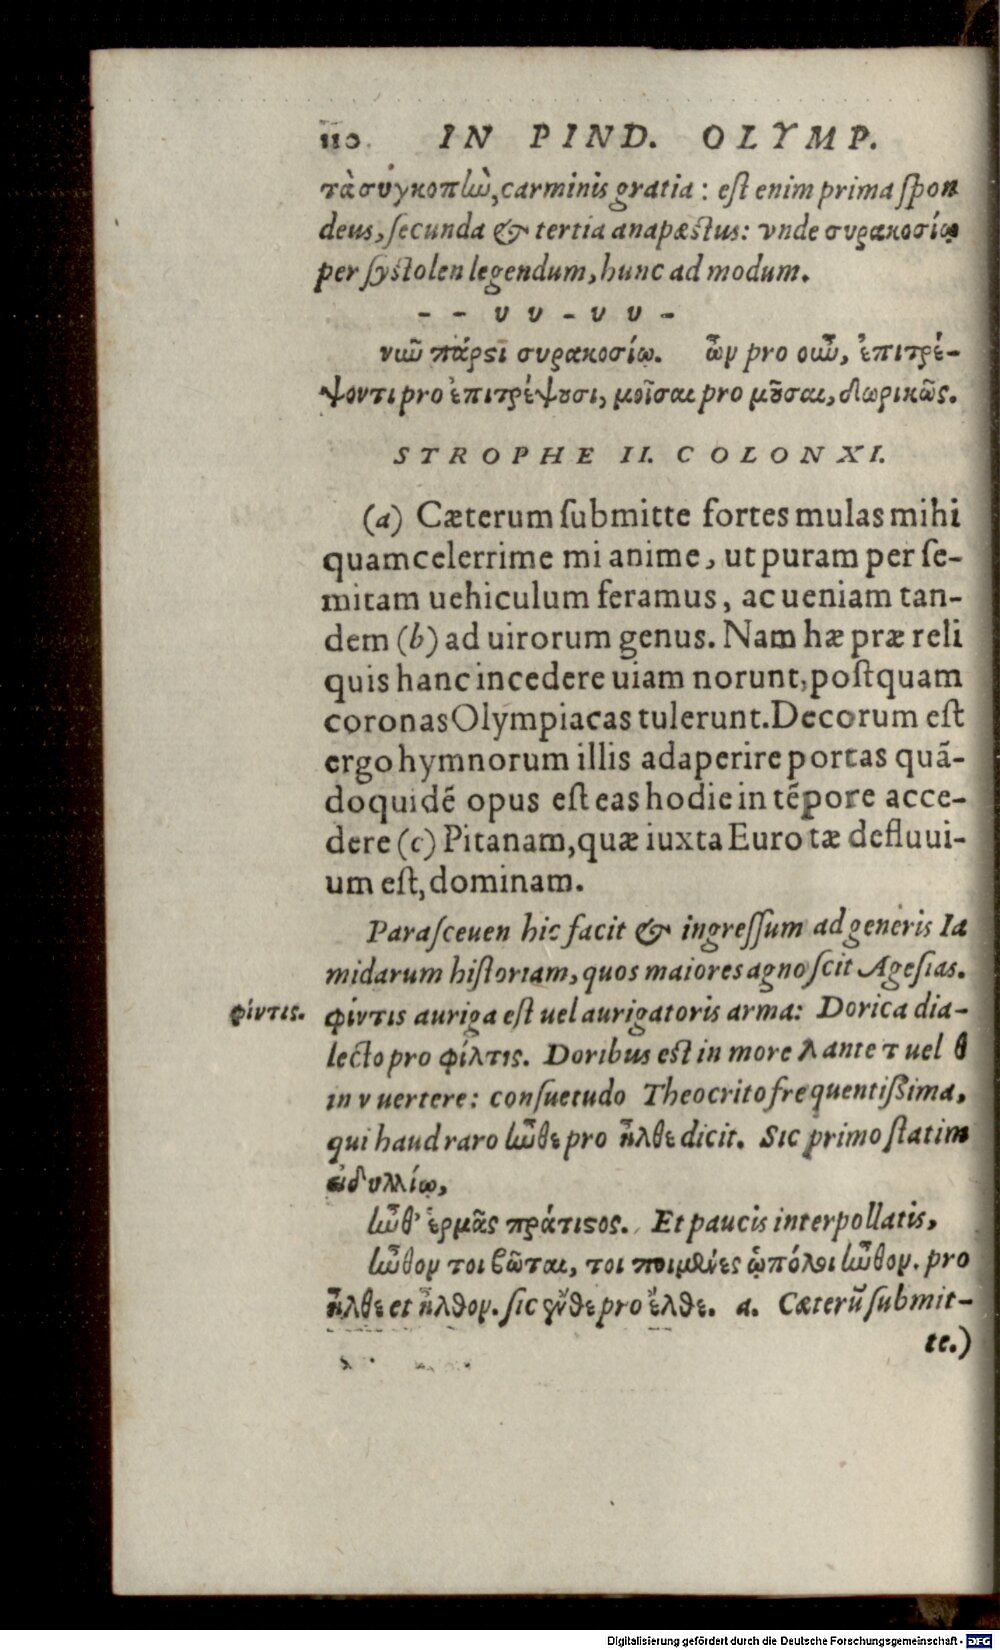 110 IN PIND. OLYMP.
τὰ συγκοπὼ, carminis gratia : eſt enim prima ſpon
deus, ſecunda & tertia anapæstus: vnde συρακοσίῳ
per ſyſtolen legendum, hunc ad modum.
– – υ υ – υ υ –
νιῦ πάρεϛι συρακοσίῳ. ὦν pro οιῦ, ἐπιτρέ-
ψοντι pro ἐπιτρέψουσι, μοῖσαι pro μοῦσαι, δωρικῶς.
STROPHE II. COLON XI.
(a) Cæterum ſubmitte fortes mulas mihi
quamcelerrime mi anime, ut puram per ſe-
mitam uehiculum feramus, ac ueniam tan-
dem (b) ad uirorum genus. Nam hæ præ reli
quis hanc incedere uiam norunt, poſtquam
coronas Olympiacas tulerunt. Decorum eſt
ergo hymnorum illis adaperire portas quā-
doquidē opus eſt eas hodie in tēpore acce-
dere (c) Pitanam, quæ iuxta Euro tæ defluui-
um eſt, dominam.
Paraſceuen hic facit & ingreſſum ad generis Ia
midarum hiſtoriam, quos maiores agnoſcit Ageſias.
φίντις.
φίντις auriga eſt uel aurigatoris arma: Dorica dia-
lecto pro φίλτις. Doribus eſt in more λ ante τ uel θ
in ν uertere: conſuetudo Theocrito frequentißima,
qui haud raro ἦνθε pro ἦλθε dicit. Sic primo ſtatim
εἰδυλλίῳ,
ἦνθ' ἑρμᾶς πράτιϛος. Et paucis interpollatis,
ἦνθον τοι βῶται, τοι ποιμένες ᾡπόλοι ἦνθον. pro
ἦλθε et ἦλθον. ſic γὔθε pro ἔλθε. a. Cæterū ſubmit-
te.)
Digitalisierung gefördert durch die Deutsche Forschungsgemeinschaft - DFG